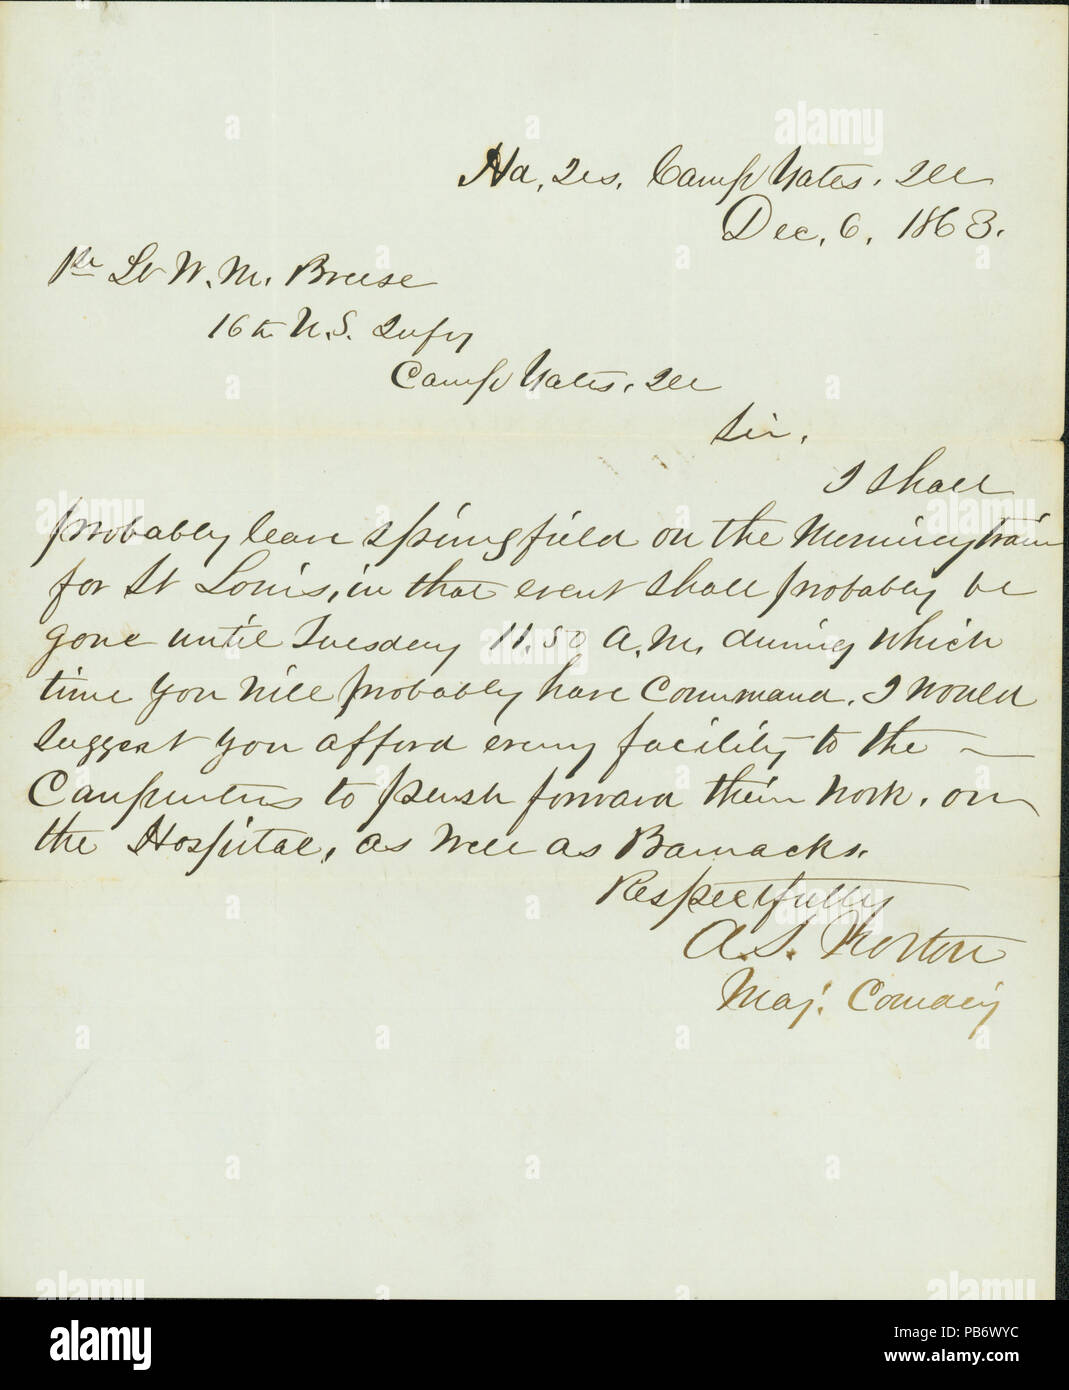 Hd. Qrs. Camp Yates. Ill
Dec. 6. 1863.
1st Lt W. M. Breese
16th U.S. Infy
Camp Yates. Ill
Sir.
I shall
probably leave Springfield on the Morning train
for St Louis, in that event shall probably be
gone until Tuesday 11.50 A.M. during which
time you will probably have Command. I would
suggest you afford every facility to the
Carpenters to push forward their work. on
the Hospital, as well as Barracks.
Respectfully
A.S. Norton
Maj. Comdg
alamy
a
alamy stock photo
PB6WYC
www.alamy.com